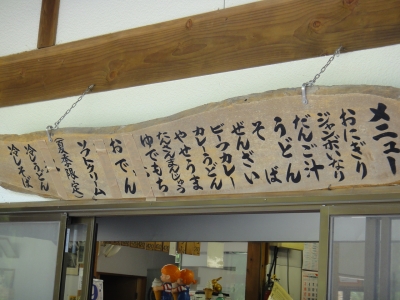 メニュー
おにぎり
ジャンボいなり
だんご汁
うどん
そば
ぜんざい
ビーフカレー
カレーうどん
やせうま
たんさんまんじゅう
ゆでもち
おでん
ソフトクリーム
(夏季限定)
冷しうどん
冷しそば